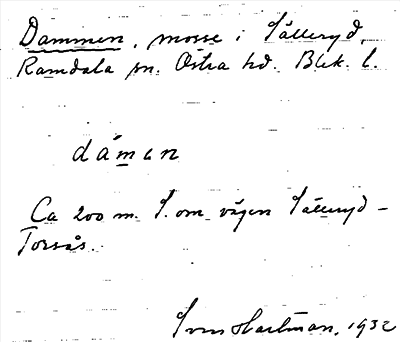 Dammen, mosse i Sälleryd,
Ramdala sn. Östra hd. Blek. l.
dámɑn
Ca 200 m. S. om vägen Sälleryd –
Torsås.
Sven Hartman, 1932